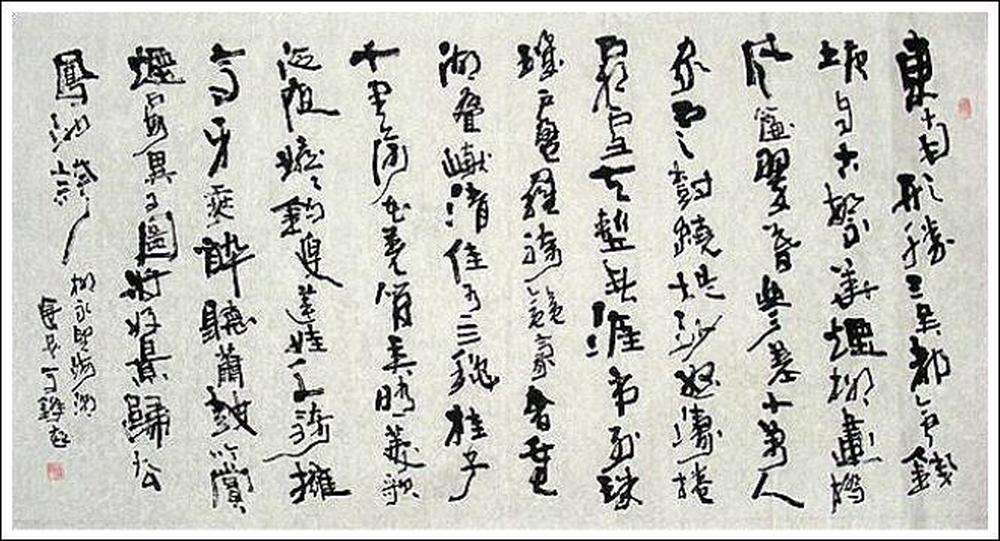 東南形勝三吳都會錢
塘自古繁華煙柳畫橋
風簾翠幕參差十萬人
家雲樹繞堤沙怒濤捲
霜雪天塹無涯市列珠
璣戶盈羅綺競豪奢重
湖疊巘清佳有三秋桂子
十里荷花羌管弄晴菱歌
泛夜嬉嬉釣叟蓮娃千騎擁
高牙乘醉聽簫鼓吟賞
煙霞異日圖將好景歸去
鳳池誇
柳永望海潮